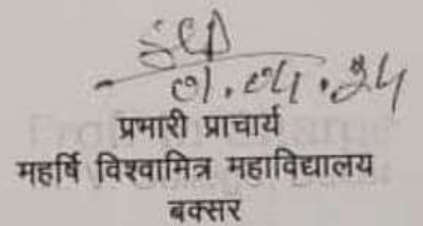 01.04.24
प्रभारी प्राचार्य
महर्षि विश्वामित्र महाविद्यालय
बक्सर